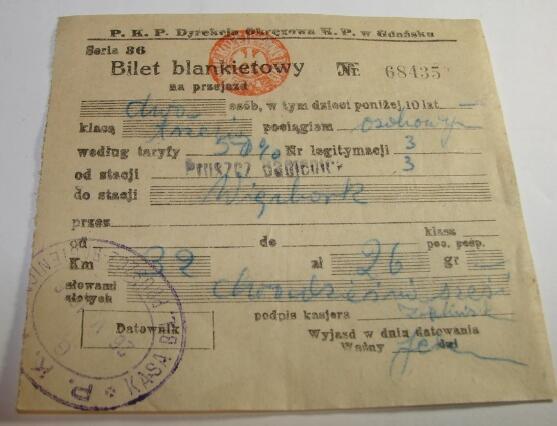 P. K. P. Dyrekcja Okręgowa K. P. w Gdańsku
Seria 36
Bilet blankietowy Nr. 68435
na przejazd
dwóch osób, w tym dzieci poniżej 10 lat —
klasą trzecią pociągiem osobowym
według taryfy 50% Nr legitymacji 3
od stacji Pruszcz Bagienica 3
do stacji Więcbork
przez
od do klasa
poc. posp.
Km 32 zł 26 gr —
słowami dwadzieścia sześć
złotych
podpis kasjera
Datownik
Wyjazd w dniu datowania
Ważny dni
P. K. P. * KASA B